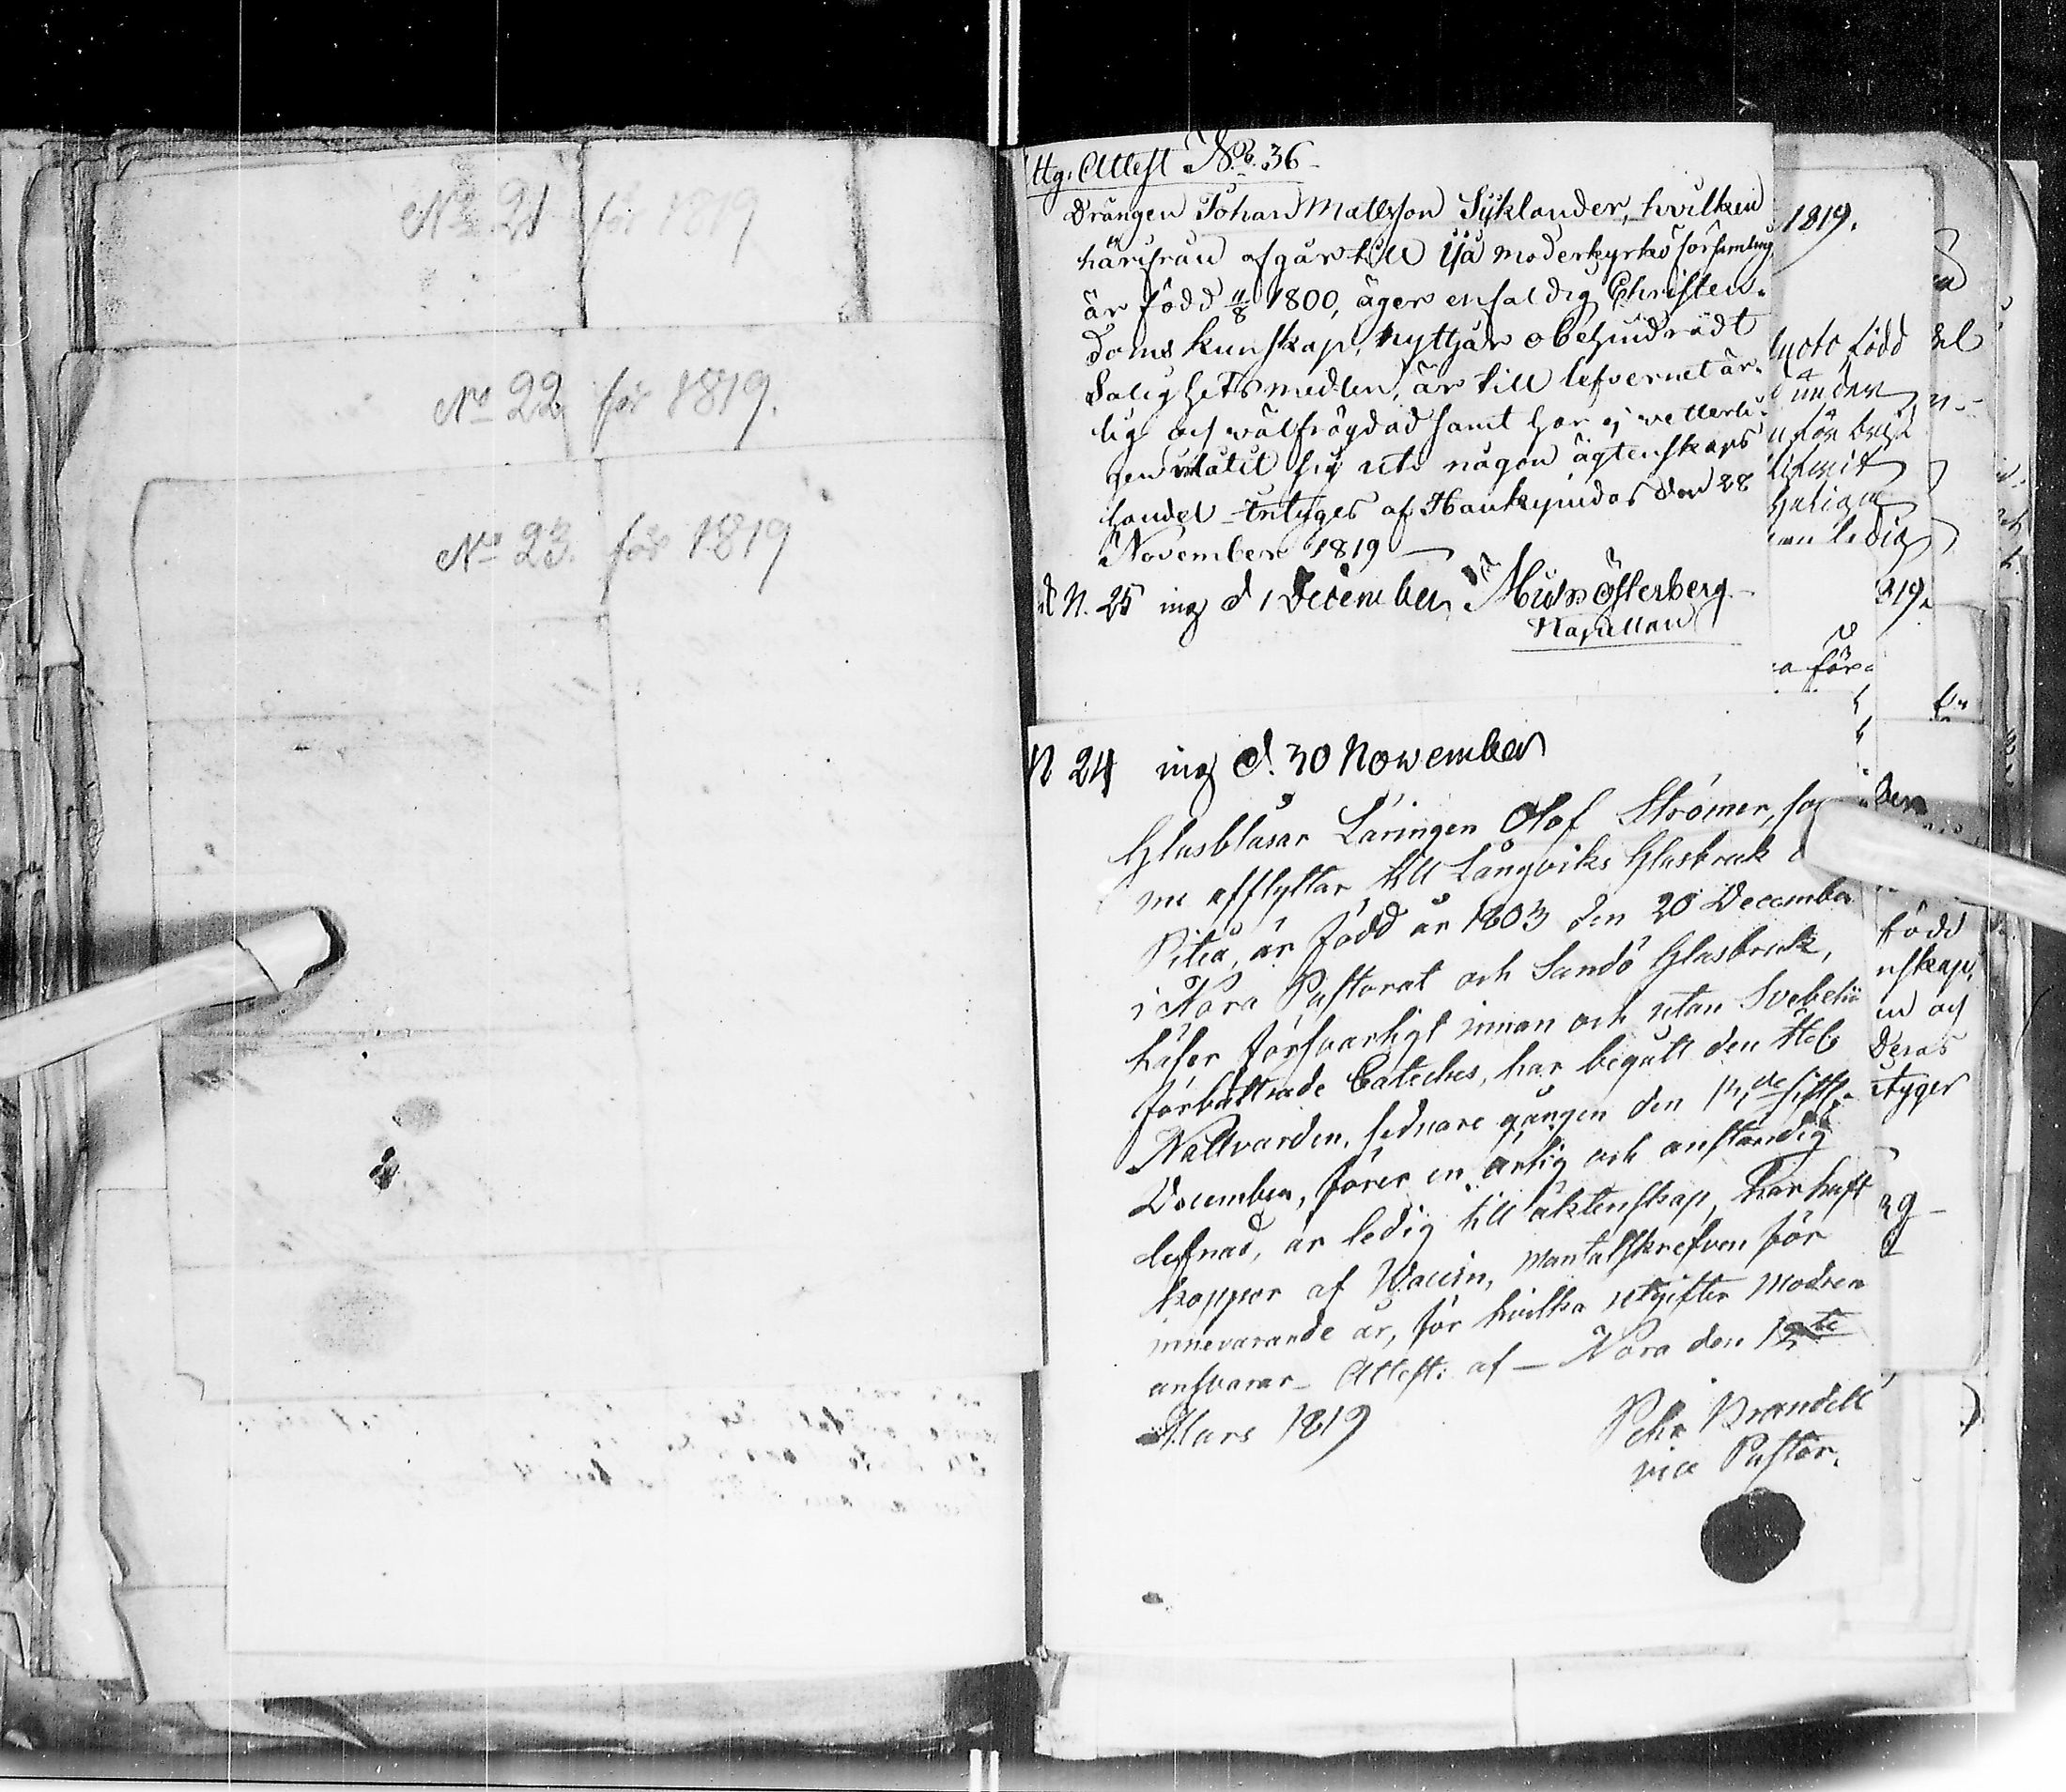 No 21 för 1819
No 22 för 1819.
No 23. för 1819
Attest No. 36
Drängen Johan Mattsson Syklander, hvilken
härifrån afgår till Ijå moderkyrko församling,
är född 11/8 1800, äger enfaldig Christen-
doms kunskap, nyttjar obehindradt
Salighets medlen, är till lefvernet är-
lig och välfrägdad samt har ej vetterli-
gen inlåtit sig uti någon ägtenskaps
handel intygas af Haukipudas den 28
November 1819
N. 25 ing d 1 December Österberg
Kapellan
N 24 ing d. 30 November
Glasblåsar Läringen Olof Strömer, so
me afflyttar till Långviks Glasbruk
Piteå, är född år 1803 den 20 December
i Nora Pastorat och Sandö Glasbruk,
läser försvarligt innan och utan Svebelii
förbättrade Cateches, har begått den Helg
Nattvarden, sednare gången den sistl.
December, förer en ärlig och anständig
lefnad, är ledig till äktenskap, har haft
koppor af Vaccin, mantalskrefven för
innevarande år, för hvilka utgifter Modren
ansvarar. Attest: af Nora den 12te
Mars 1819
Pehr Brandell
vice Pastor.
1819.
född
under
ledig
319.
för
född
nskap,
och
Deras
tyger